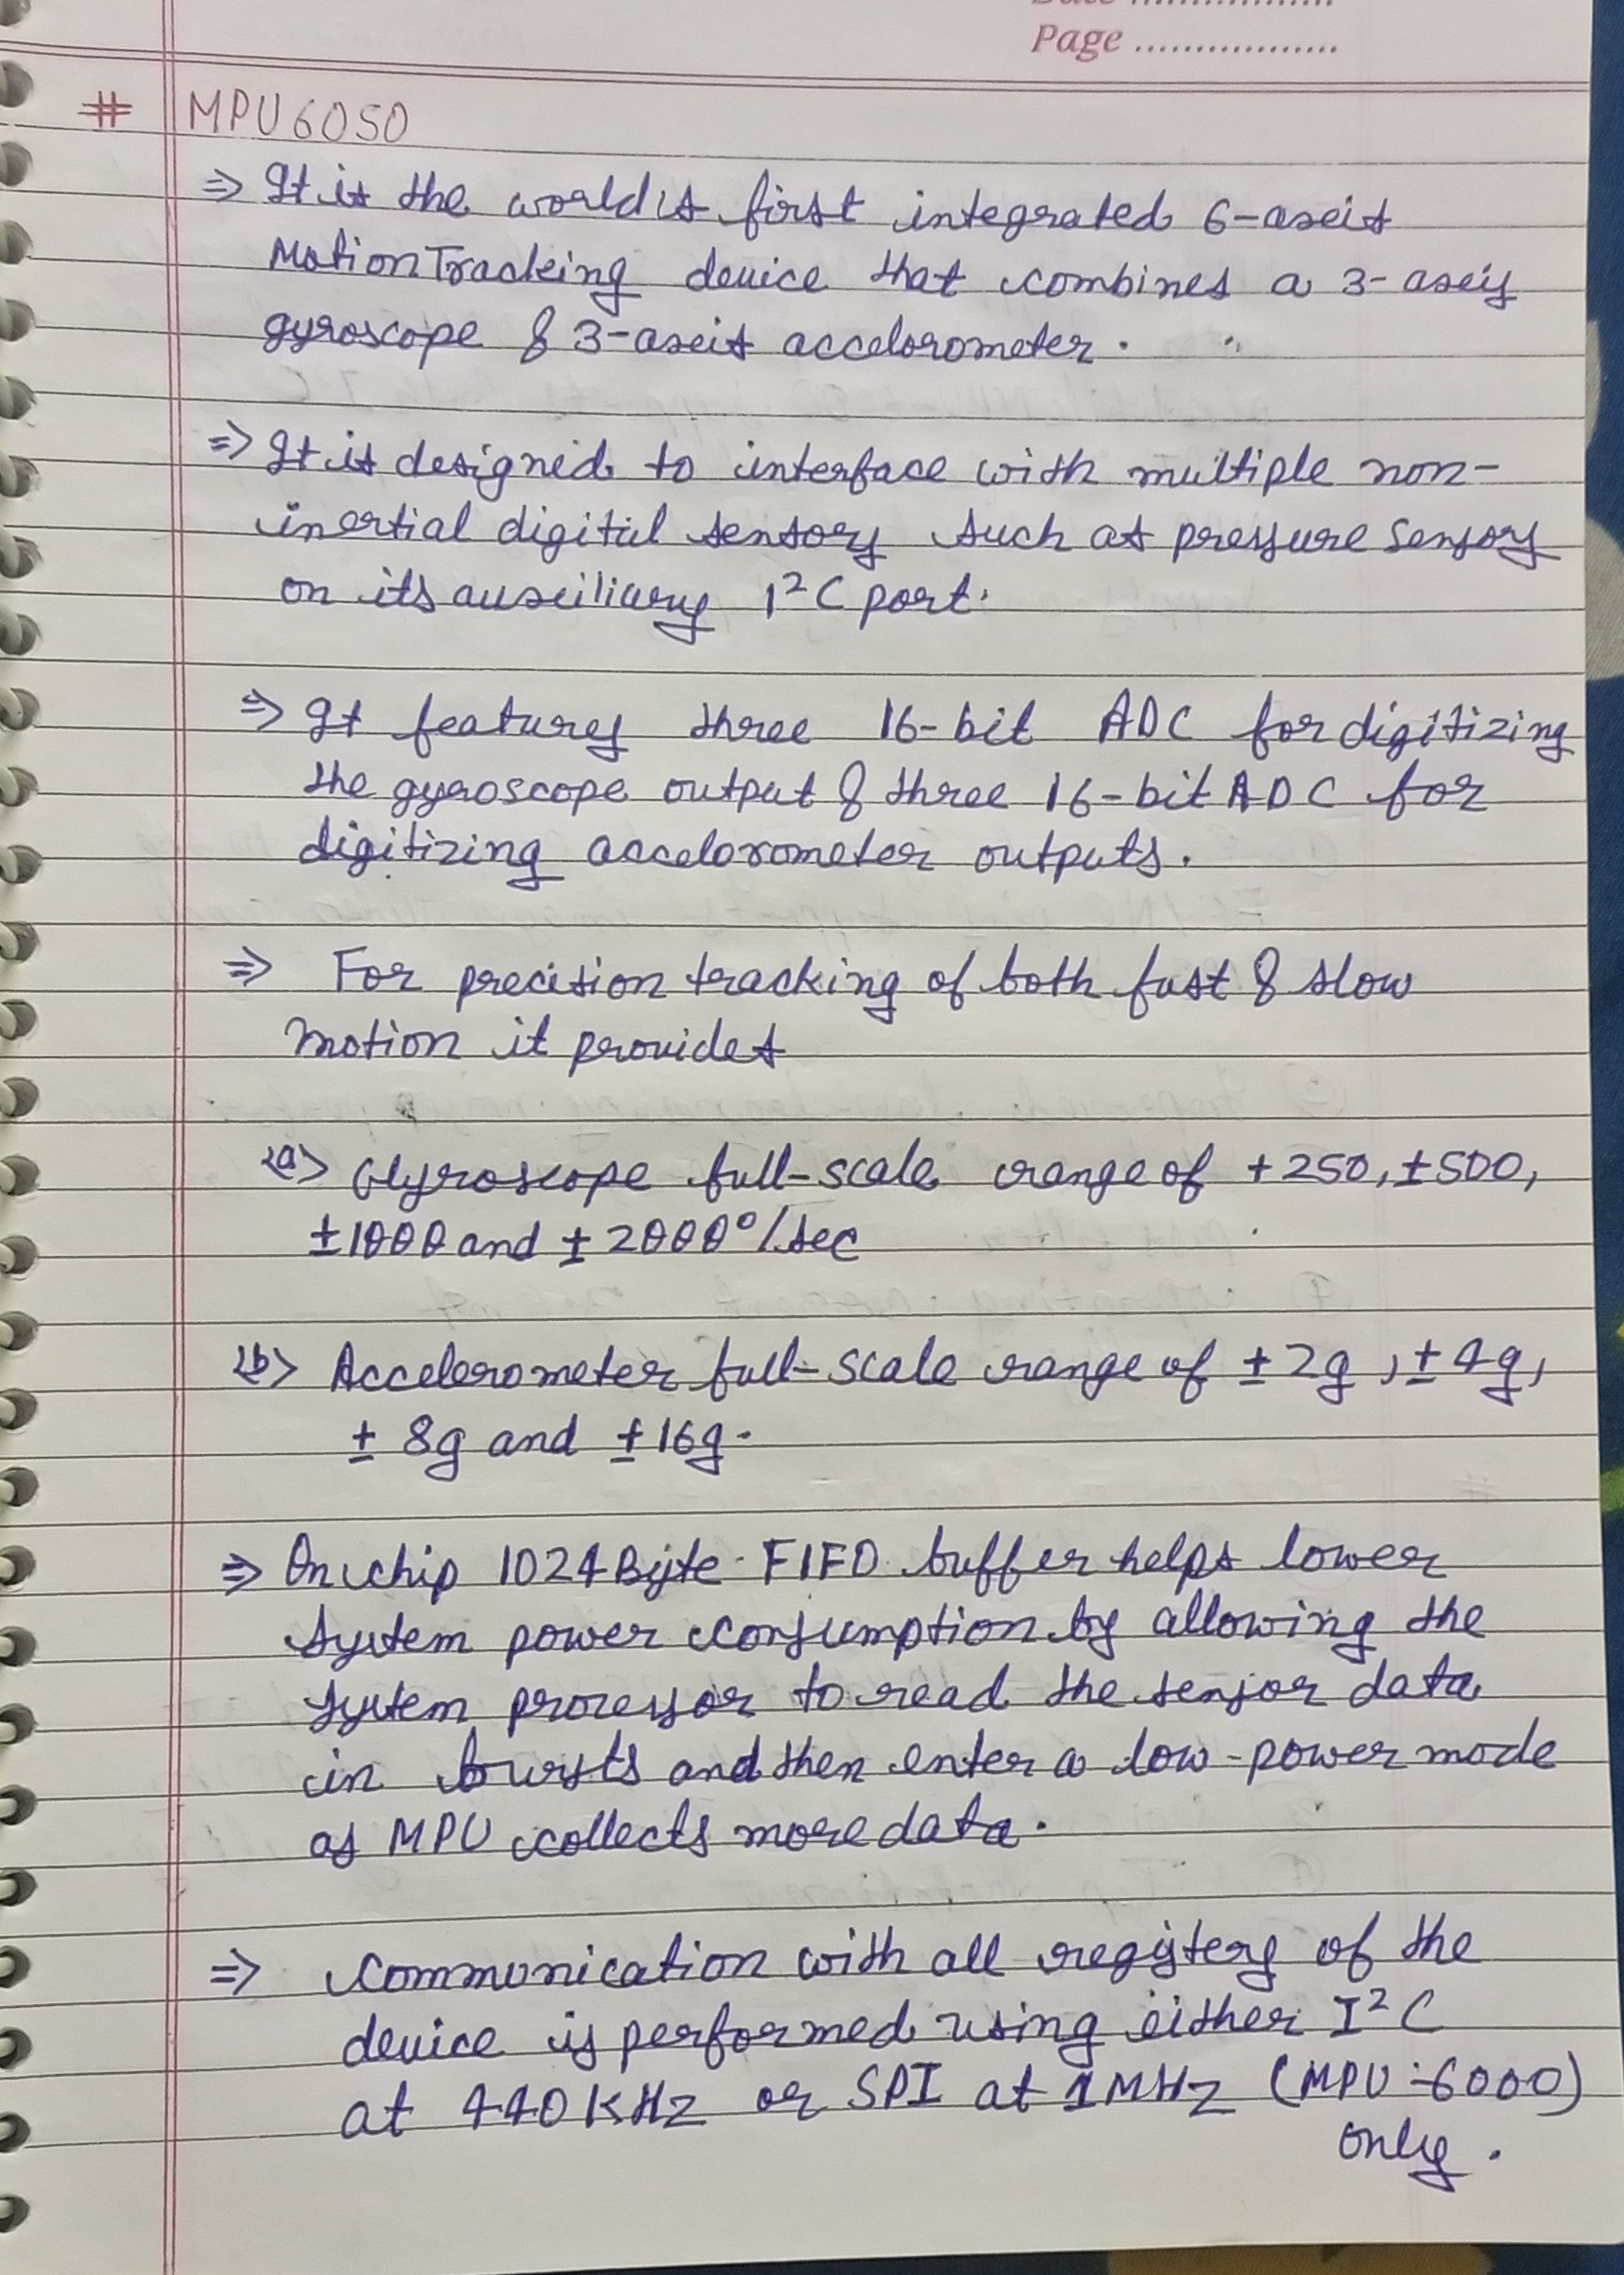 Date ..................
Page ..................
# MPU6050
⇒ It is the world's first integrated 6-axis
MotionTracking device that combines a 3-axis
gyroscope & 3-axis accelorometer.
⇒ It is designed to interface with multiple non-
inertial digital sensors such as pressure sensors
on its auxiliary I²C port.
⇒ It features three 16-bit ADC for digitizing
the gyroscope output & three 16-bit ADC for
digitizing accelorometer outputs.
⇒ For precision tracking of both fast & slow
motion it provides
(a) Gyroscope full-scale range of +250, ±500,
±1000 and ±2000°/sec
(b) Accelerometer full-scale range of ±2g, ±4g,
± 8g and ±16g.
⇒ On chip 1024 Byte FIFO buffer helps lower
system power consumption by allowing the
system processor to read the sensor data
in bursts and then enter a low-power mode
as MPU collects more data.
⇒ Communication with all registers of the
device is performed using either I²C
at 440KHz or SPI at 1MHz (MPU-6000)
only.